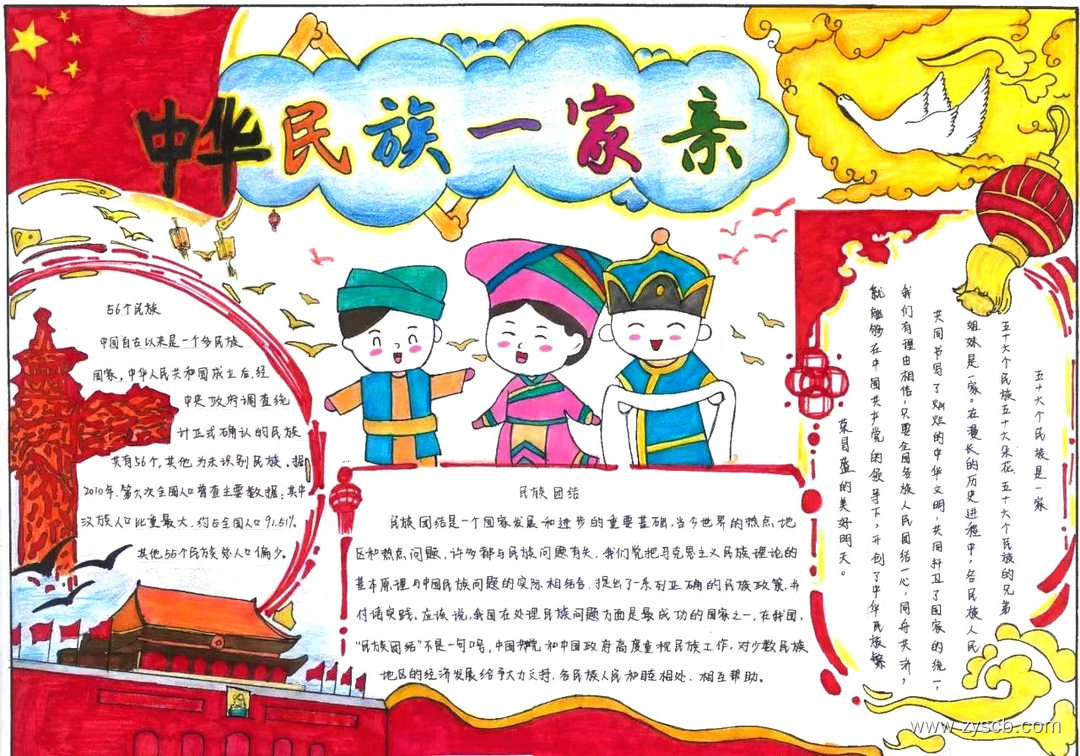 中华民族一家亲
56个民族
中国自古以来是一个多民族
国家，中华人民共和国成立后，经
中央政府调查统
计正式确认的民族
共有56个，其他为未识别民族。据
2010年第六次全国人口普查主要数据：其中
汉族人口比重最大，约占全国人口91.51%
其他55个民族总人口偏少。
民族团结
民族团结是一个国家发展和进步的重要基础，当今世界的热点地
区和热点问题，许多都与民族问题有关，我们党把马克思主义民族理论的
基本原理与中国民族问题的实际相结合，提出了一系列正确的民族政策，并
付诸实践。应该说，我国在处理民族问题方面是最成功的国家之一，在我国，
“民族团结”不是一句口号，中国共产党和中国政府高度重视民族工作，对少数民族
地区的经济发展给予大力支持，各民族人民和睦相处、相互帮助。
五十六个民族是一家
五十六个民族五十六朵花，五十六个民族的兄弟
姐妹是一家。在漫长的历史进程中，各民族人民
共同书写了灿烂的中华文明，共同捍卫了国家的统一，
我们有理由相信，只要全国各族人民团结一心，同舟共济，
就能够在中国共产党的领导下，开创了中华民族繁
荣昌盛的美好明天。
www.zyscb.com